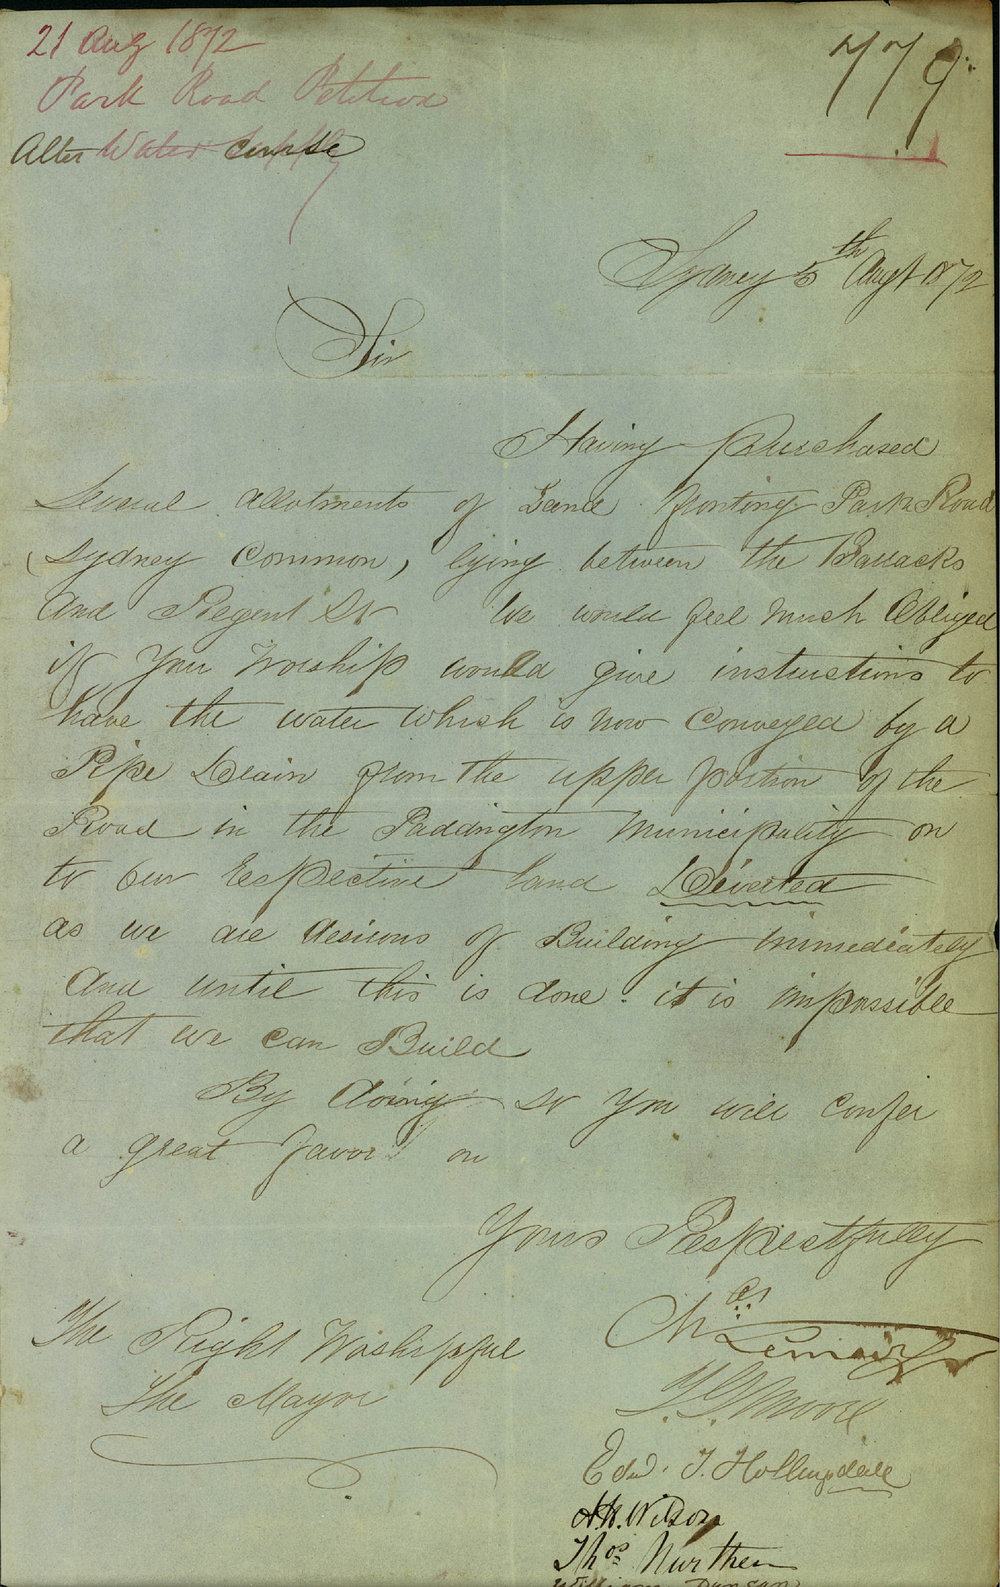 21 Aug 1872
Park Road Petition
Alter Water Course
779
Sydney 5th Augt 1872
Sir
Having Purchased
Several allotments of Land fronting Park Road
(Sydney Common, lying between the Barracks
And Regent St We would feel Much Obliged
if Your Worship would give instructions to
have the water which is now Conveyed by a
Pipe Drain from the upper portion of the
Road in the Paddington Municipality on
to our Respective land Diverted
as we are desirous of Building immediately
And until this is done. it is impossible
that we can Build
By doing so You will confer
a great favor on
Yours Respectfully
The Right Worshipful
The Mayor
Chas Lemair
T. G. Moore
Edwd. T. Hollingdale
A.H. Wilson
Thos Northen
William Duncan